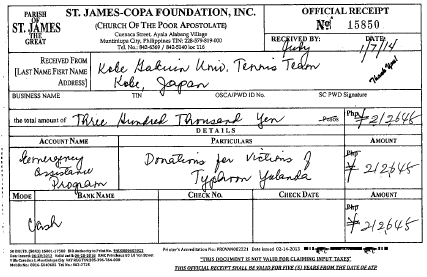 PARISH OF ST. JAMES THE GREAT
ST. JAMES-COPA FOUNDATION, INC.
(CHURCH OF THE POOR APOSTOLATE)
Cuenca Street, Ayala Alabang Village
Muntinlupa City, Philippines TIN: 228-579-819-000
Tel. No.: 842-4369 / 842-5140 loc 116
OFFICIAL RECEIPT
No. 15850
RECEIVED BY: DATE:
Judy 1/7/14
RECEIVED FROM
[LAST NAME FIRST NAME
ADDRESS]
Kobe Gakuin Univ. Tennis Team
Kobe, Japan
Thank You!
BUSINESS NAME TIN OSCA/PWD ID No. SC PWD Signature
the total amount of Three Hundred Thousand Yen Pesos Php ¥212645
DETAILS
ACCOUNT NAME PARTICULARS AMOUNT
Emergency Assistance Program
Donations for Victims of
Typhoon Yolanda
Php ¥212645
MODE BANK NAME CHECK NO. CHECK DATE AMOUNT
Cash ¥212645
"THIS DOCUMENT IS NOT VALID FOR CLAIMING INPUT TAXES"
THIS OFFICIAL RECEIPT SHALL BE VALID FOR FIVE (5) YEARS FROM THE DATE OF ATP